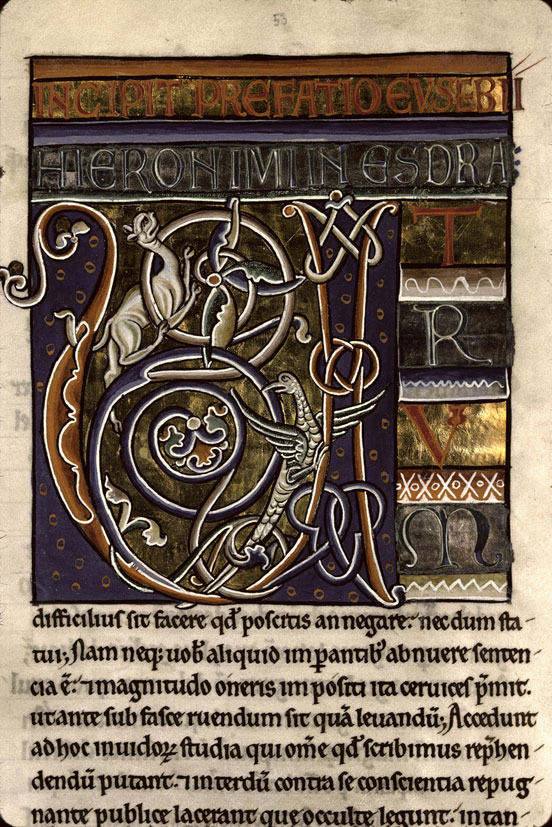 53
INCIPIT PREFATIO EVSEBII
HIERONIMI IN ESDRA
U
T
R
V
M
difficilius sit facere qđ poscitis an negare. nec dum sta-
tui; Nam neq; uob̄ aliquid im ꝑantib; abnuere senten-
cia ē. ⁊ magnitudo oneris im positi ita ceruices p̄mit.
ut ante sub fasce ruendum sit quā leuandū; Accedunt
ad hoc inuidoꝝ studia qui om̄e qđ scribimus rep̄hen-
dendū putant. ⁊ interdū contra se conscientia repug-
nante publice lacerant que occulte legunt. in tan-